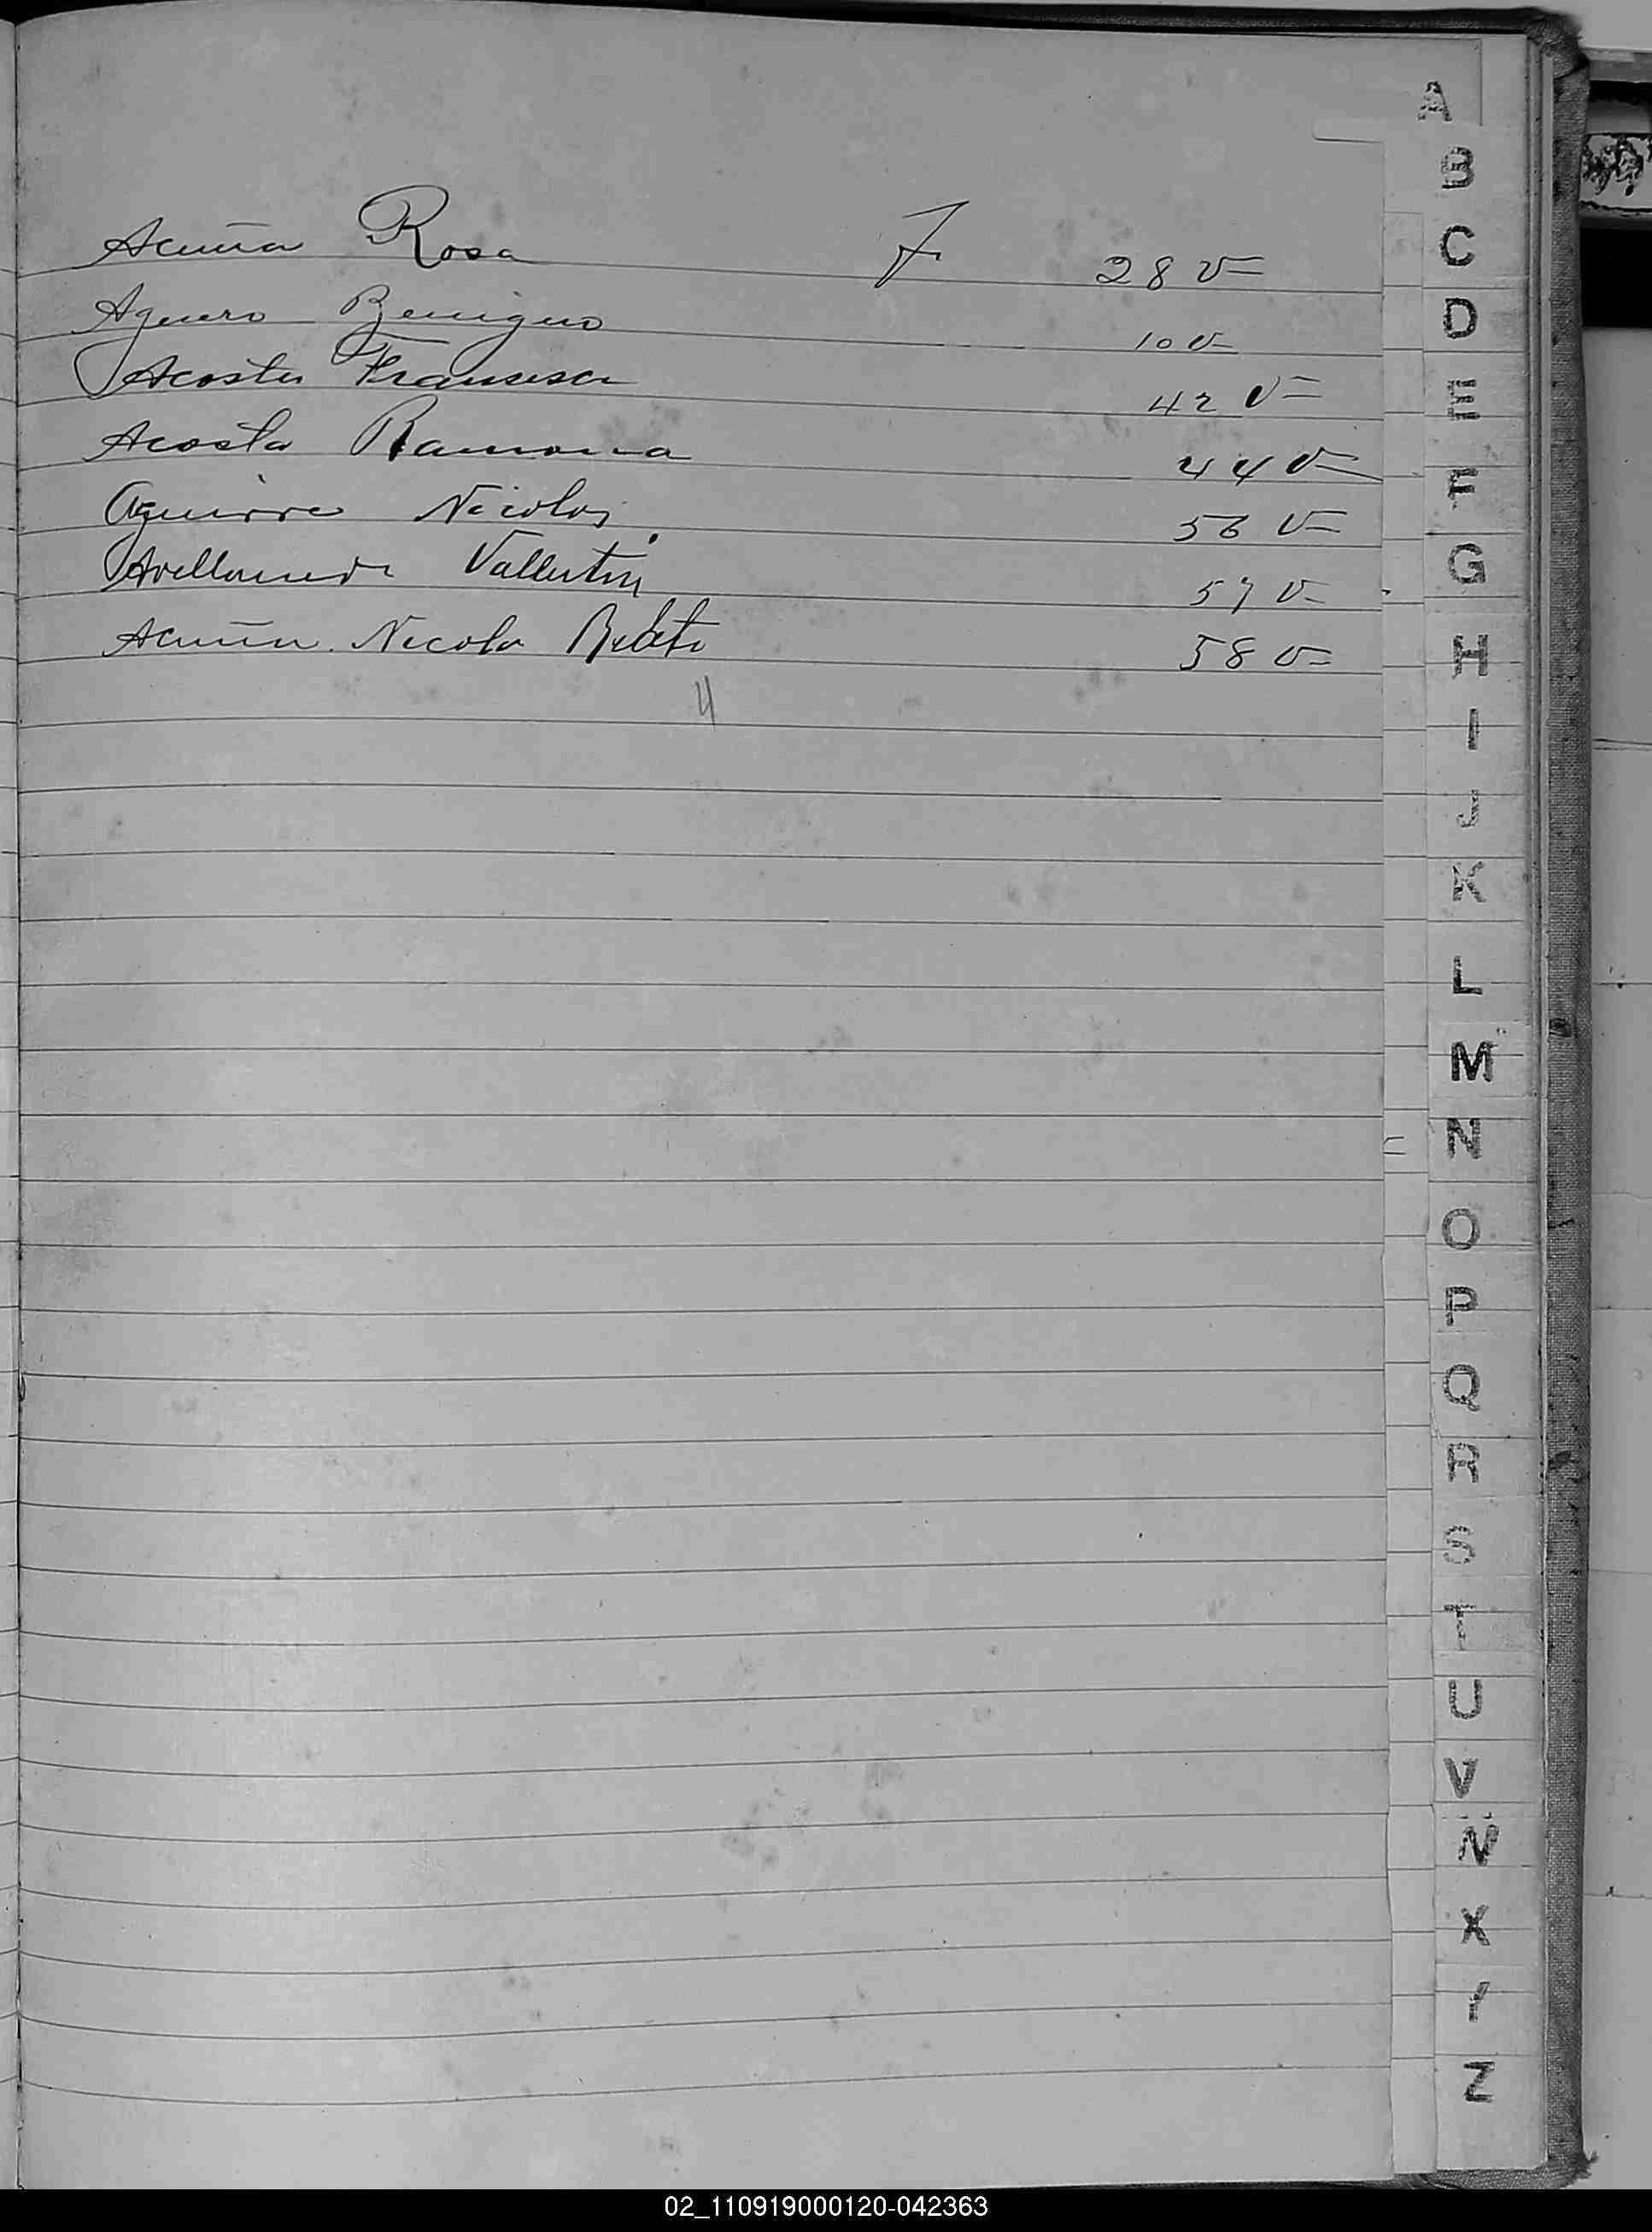 Acuña Rosa F 28 v=
Aguero Benigno 10 v-
Acosta Francisca 42 v=
Acosta Ramona 44 v=
Aguirre Nicolas 56 v=
Avellaneda Vallentin 57 v-
Acuña Nicola 58 v=
4
A
B
C
D
E
F
G
H
I
J
K
L
M
N
O
P
Q
R
S
T
U
V
X
Y
Z
02_110919000120-042363